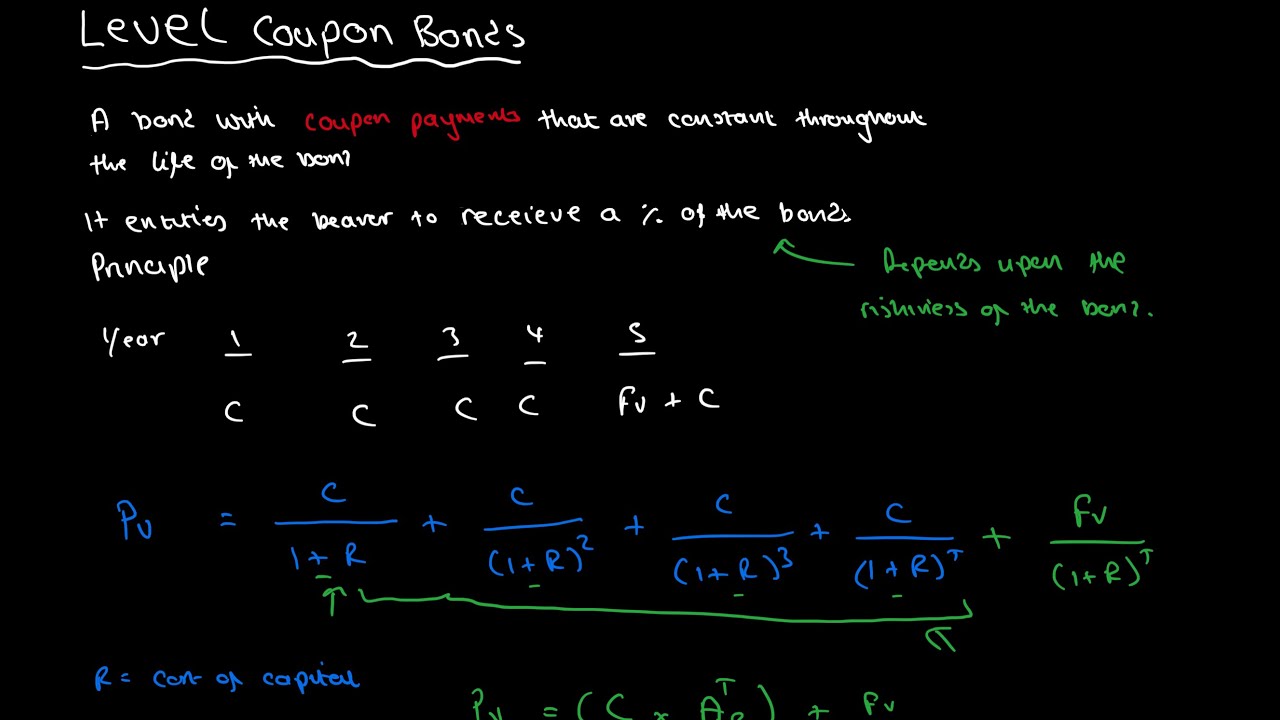 Level Coupon Bonds
A bond with coupon payments that are constant throughout
the life of the bond
It entitles the bearer to receieve a % of the bonds
Principle
Depends upon the
riskiness of the bond.
Year 1 2 3 4 5
C C C C Fv + C
Pv = C/(1 + R) + C/(1 + R)^2 + C/(1 + R)^3 + C/(1 + R)^T + Fv/(1 + R)^T
R = cost of capital
Pv = (C × A_R^T) + Fv